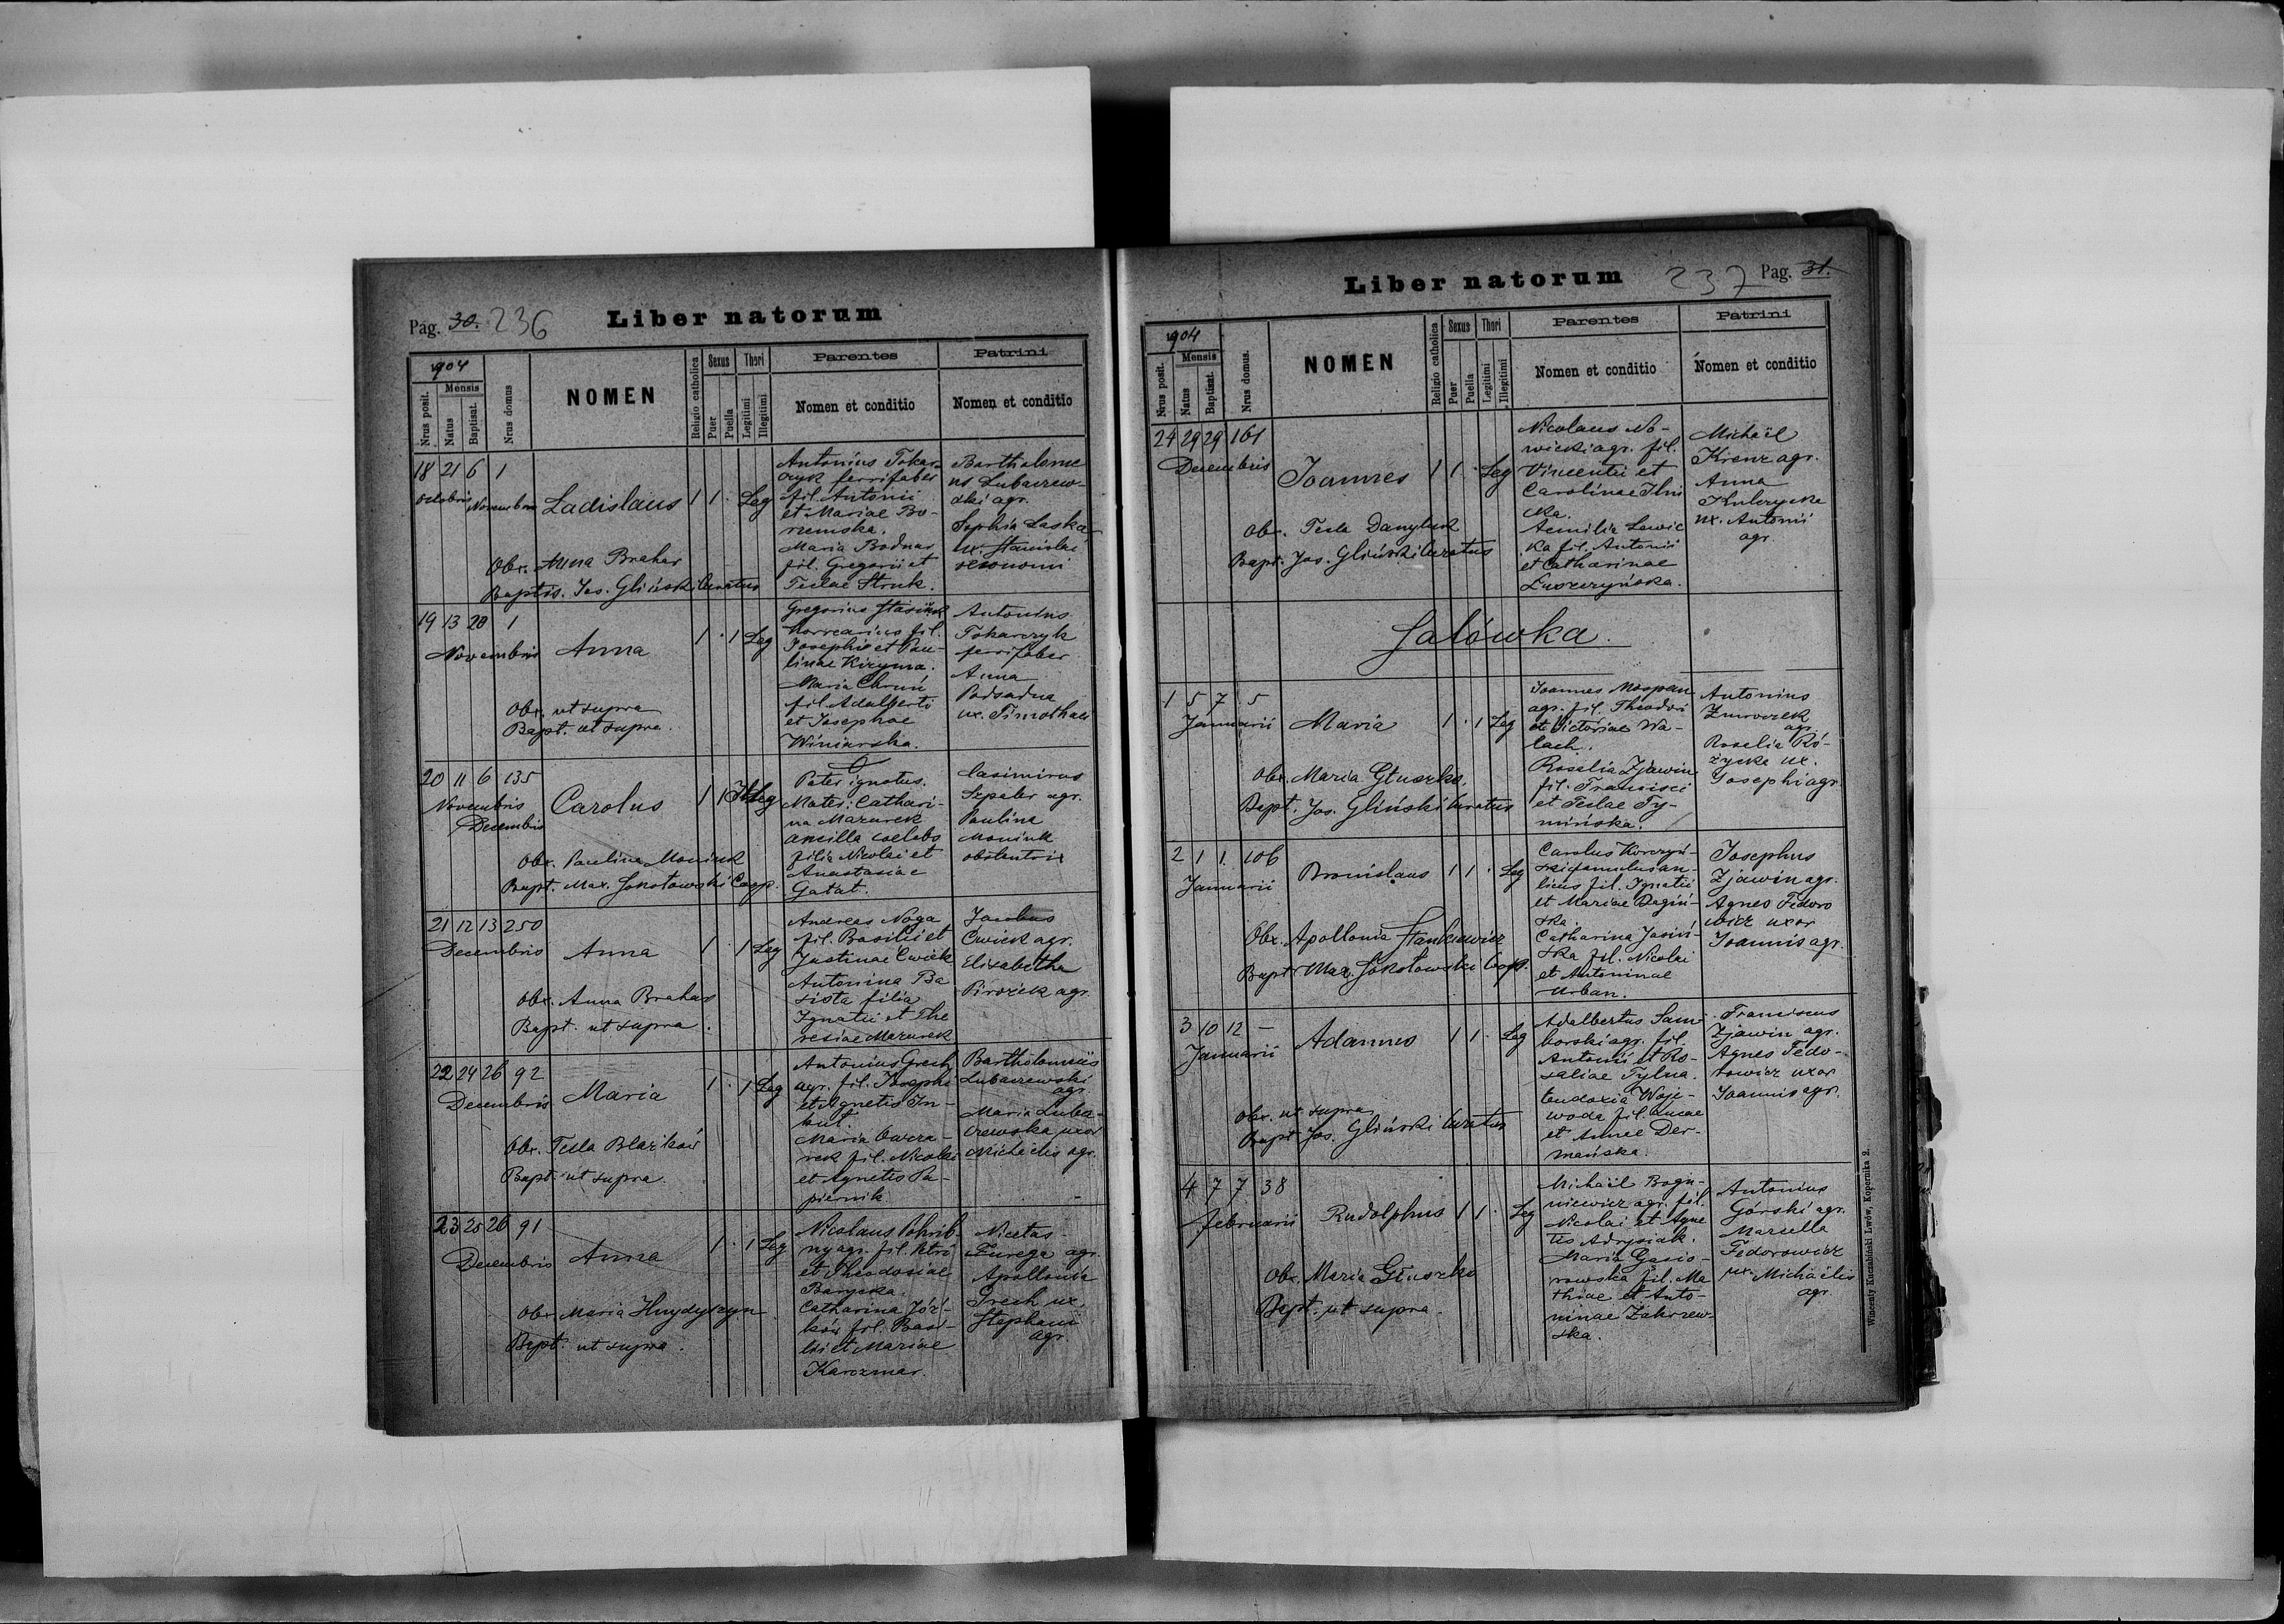 Pag. 30. 236
Liber natorum
1904
Mensis
Nrus posit.
Natus
Baptisat.
Nrus domus
NOMEN
Religio catholica
Sexus
Puer
Puella
Thori
Legitimi
Illegitimi
Parentes
Nomen et conditio
Patrini
Nomen et conditio
18 21 6 1
Octobris Novembris
Ladislaus 1 1 · Leg
Obx. Anna Brahar
Baptis. Jos. Gliński Curatus
Antonius Tokar-
czyk ferrifaber
fil. Antonii
et Mariae Bo-
rzemska.
Maria Bodnar
fil. Gregorii et
Teclae Struk.
Bartholome
us Lubaczew-
ski agr.
Sophia Laska
ux. Stanislai
oeconomi
19 13 20 1
Novembris
Anna 1 · 1 Leg
Obx. ut supra
Bapt. ut supra.
Gregorius Stasiuk
fil.
Josephi et Pau-
linae Kiryma.
Maria
fil. Adalberti
et Josephae
Winiarska.
Antonius
Tokarczyk
ferrifaber
Anna
Podsadna
ux. Timothaei
20 11 6 135
Novembris
Decembris
Carolus 1 1 Illeg
Obx. Paulina Moniuk
Bapt. Max. Sokołowski Coop.
Pater ignotus.
Mater: Cathari-
na Mazurek
ancilla coelebs
filia Nicolai et
Anastasiae
Gałat.
Casimirus
Szpaler agr.
Paulina
Moniuk
obstentrix
21 12 13 250
Decembris
Anna 1 · 1 Leg
Obx. Anna Brahar
Bapt. ut supra.
Andreas Noga
fil. Basilii et
Justinae Cwiek
Antonina Ba
sista filia
Ignatii et The
resiae Mazurek
Jacobus
Cwiek agr.
Elisabetha
Pirożek agr.
22 24 26 92
Decembris
Maria 1 · 1 Leg
Obx. Tecla Blazików
Bapt. ut supra.
Antonius Grech
agr. fil. Josephi
et Agnetis In-
but.
Maria Owcza-
rek fil. Nicolai
et Agnetis Pa-
piernik
Bartholomaeus
Lubaczewski
agr.
Maria Luba-
czewska uxor
Michaëlis agr.
23 25 26 91
Decembris
Anna 1 · 1 Leg
Obx. Maria Hnydyszyn
Bapt. ut supra.
Nicolaus Pohrib-
ny agr. fil. Petri
et Theodosiae
Barycka.
Catharina Józ-
ków fil. Basi-
lii et Mariae
Karczmar.
Nicetas
Furega agr.
Apollonia
Grech ux.
Stephani
agr.
Liber natorum
237 Pag. 31.
1904
Mensis
Nrus posit.
Natus
Baptisat.
Nrus domus.
NOMEN
Religio catholica
Sexus
Puer
Puella
Thori
Legitimi
Illegitimi
Parentes
Nomen et conditio
Patrini
Nomen et conditio
24 29 29 161
Decembris
Joannes 1 1 · Leg
Obx. Tecla Danyluk
Bapt. Jos. Gliński Curatus
Nicolaus No-
wicki agr. fil.
Vincentii et
Carolinae Ilni
cka.
Aemilia Lewic
ka fil. Antonii
et Catharinae
Luszczyńska.
Michaël
Krenz agr.
Anna
Kulczycka
ux. Antonii
agr.
Salówka.
1 5 7 5
Januarii
Maria 1 · 1 Leg
Obx. Maria Głuszko.
Bapt. Jos. Gliński Curatus
Joannes Mospan
agr. fil. Theodori
et Victoriae Wa-
lach.
Rosalia Zjawin
fil. Francisci
et Teclae Ty-
mińska.
Antonius
Zmroczek
agr.
Rosalia Ró-
życka ux.
Josephi agr.
2 1 1. 106
Januarii
Bronislaus 1 1 · Leg
Obx. Apollonia Stankiewicz
Bapt. Max. Sokołowski Coop.
Carolus Korczyń-
ski famulus au-
licus fil. Ignatii
et Mariae Bagiń-
ska.
Catharina Jasiń-
ska fil. Nicolai
et Antoninae
Urban.
Josephus
Zjawin agr.
Agnes Fedoro
wicz uxor
Joannis agr.
3 10 12 –
Januarii
Adamus 1 1 · Leg
Obx. ut supra
Bapt. Jos. Gliński Curatus
Adalbertus Sam-
borski agr. fil.
Antonii et Ro-
saliae Tylna.
Eudoxia Woje-
woda fil. Lucae
et Annae Der-
mańska.
Franciscus
Zjawin agr.
Agnes Fedo-
rowicz uxor
Joannis agr.
4 7 7 38
Februarii
Rudolphus 1 1 · Leg
Obx. Maria Głuszko
Bapt. ut supra.
Michaël Bogu-
niewicz agr. fil.
Nicolai et Agne
tis Adrysiak.
Maria Gasio-
rowska fil. Ma
thiae et Anto-
ninae Zakrzew-
ska.
Antonius
Górski agr.
Marcella
Fedorowicz
ux. Michaëlis
agr.
Wincenty Kuczabiński Lwów, Kopernika 2.